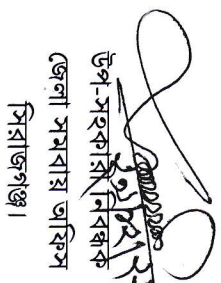 উপ-সহকারী নিবন্ধক
জেলা সমবায় অফিস
সিরাজগঞ্জ।